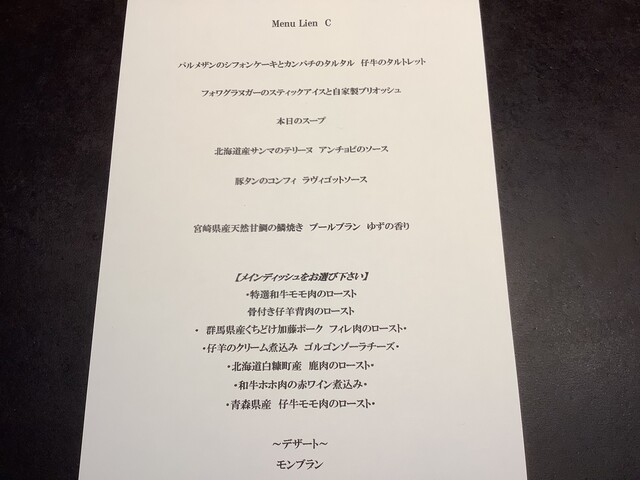 Menu Lien C
パルメザンのシフォンケーキとカンパチのタルタル 仔牛のタルトレット
フォワグラヌガーのスティックアイスと自家製ブリオッシュ
本日のスープ
北海道産サンマのテリーヌ アンチョビのソース
豚タンのコンフィ ラヴィゴットソース
宮崎県産天然甘鯛の鱗焼き ブールブラン ゆずの香り
【メインディッシュをお選び下さい】
・特選和牛モモ肉のロースト
骨付き仔羊背肉のロースト
・ 群馬県産くちどけ加藤ポーク フィレ肉のロースト・
・仔羊のクリーム煮込み ゴルゴンゾーラチーズ・
・北海道白糠町産 鹿肉のロースト・
・和牛ホホ肉の赤ワイン煮込み・
・青森県産 仔牛モモ肉のロースト・
～デザート～
モンブラン